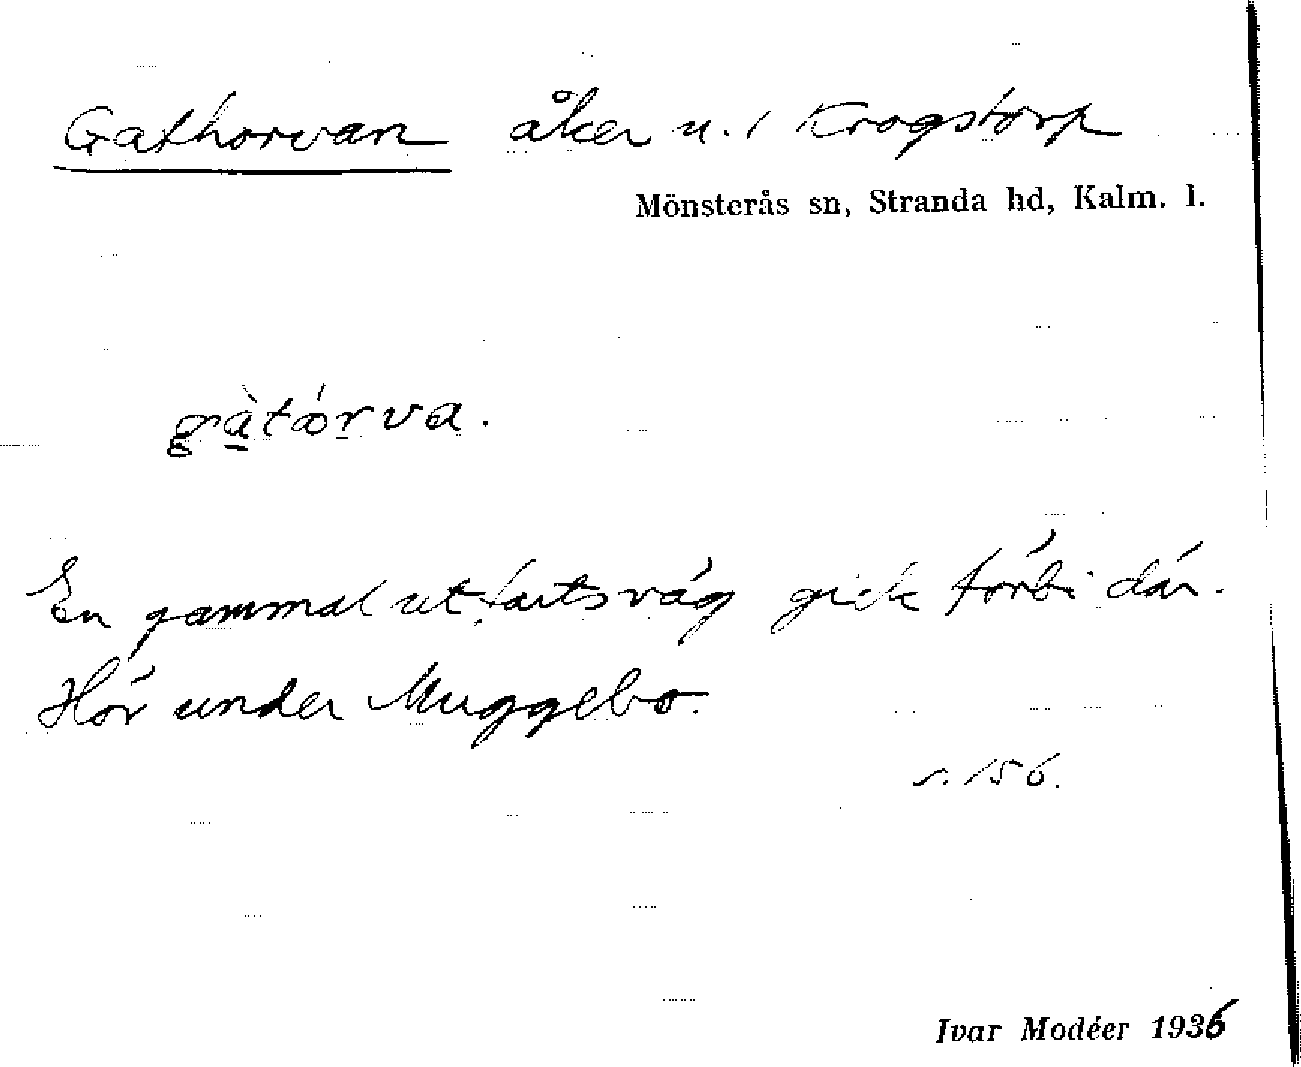 Gathorvan åker u. / Krogstorp
Mönsterås sn, Stranda hd, Kalm. l.
gàtórva.
En gammal utfartsväg gick förbi där.
Hör under Muggebo.
s. 156.
Ivar Modéer 1936